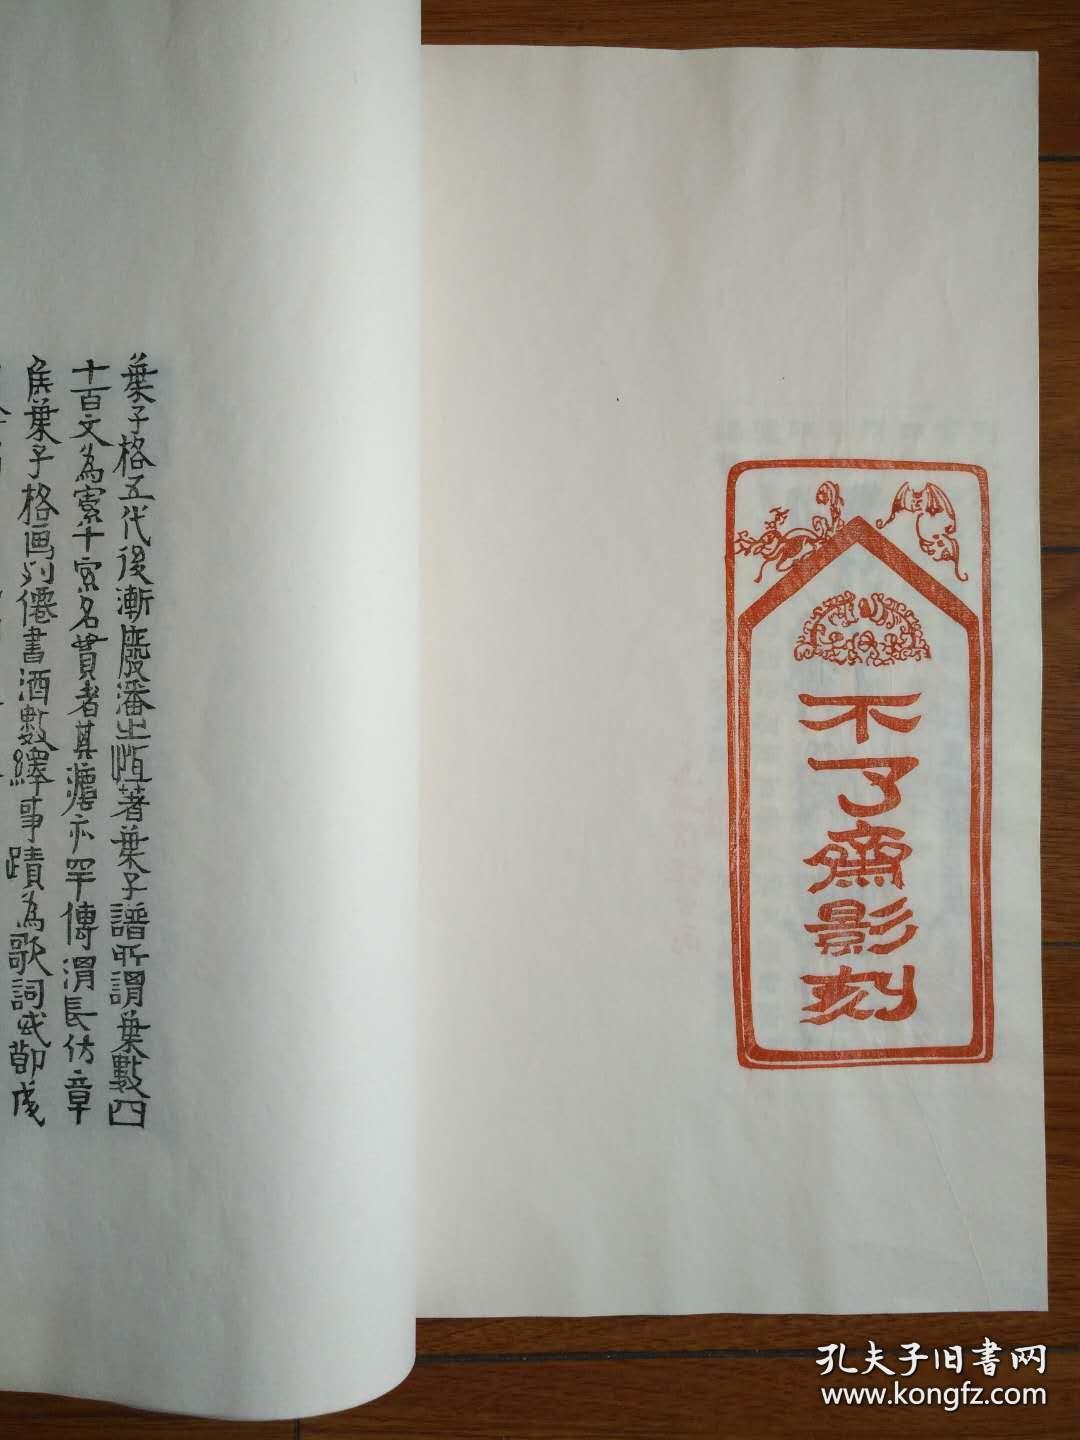 不了齋影刻
葉子格五代後漸廢潘之恒著葉子譜所謂葉數四
十百文為索十索名貫者其濫亦罕傳渭長仿章
矦葉子格画列僊書酒數繹事蹟為歌詞或即成
孔夫子旧書网
www.kongfz.com